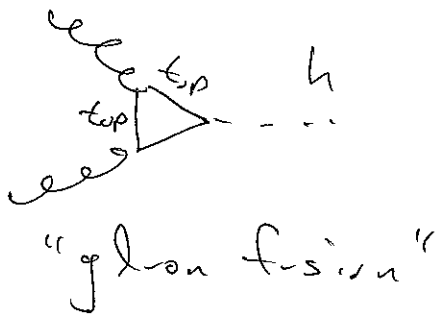 top h
top
"gluon fusion"